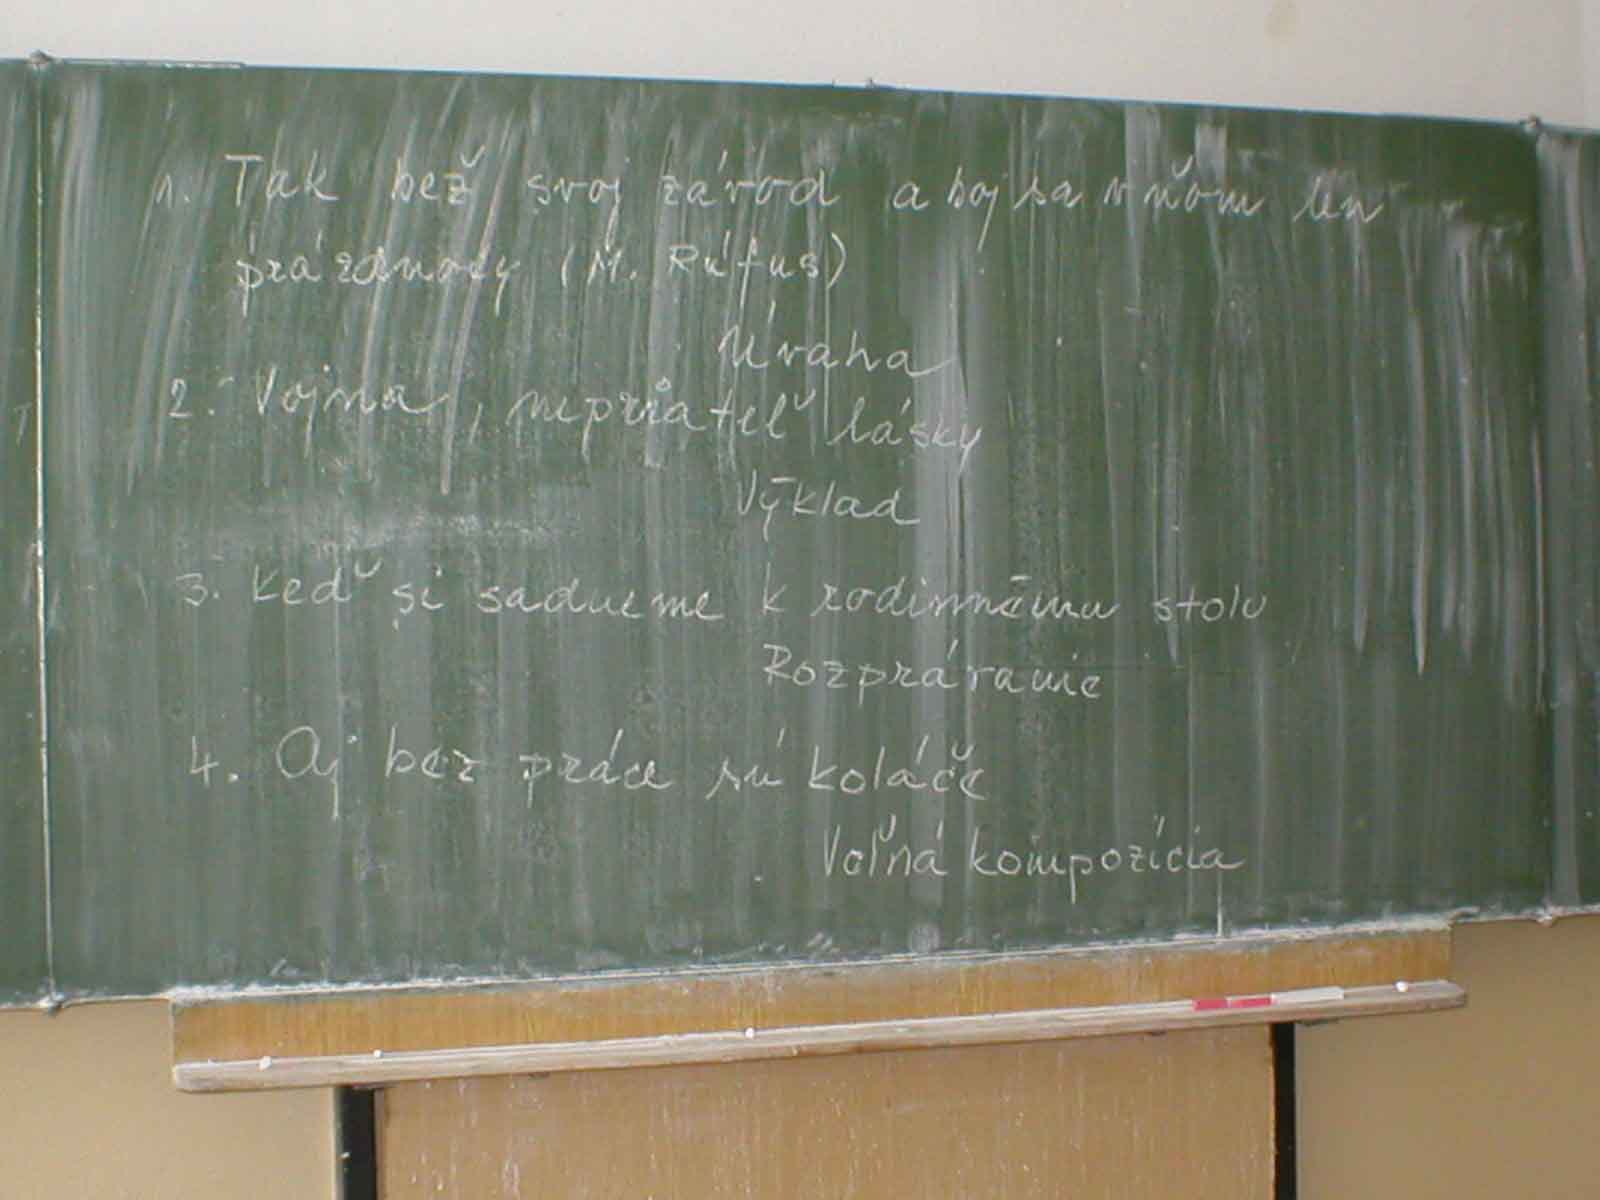 1. Tak bež svoj závod a boj sa v ňom len
prázdnoty (M. Rúfus)
Úvaha
2. Vojna, nepriateľ lásky
Výklad
3. Keď si sadneme k rodinnému stolu
Rozprávanie
4. Aj bez práce sú koláče
Voľná kompozícia